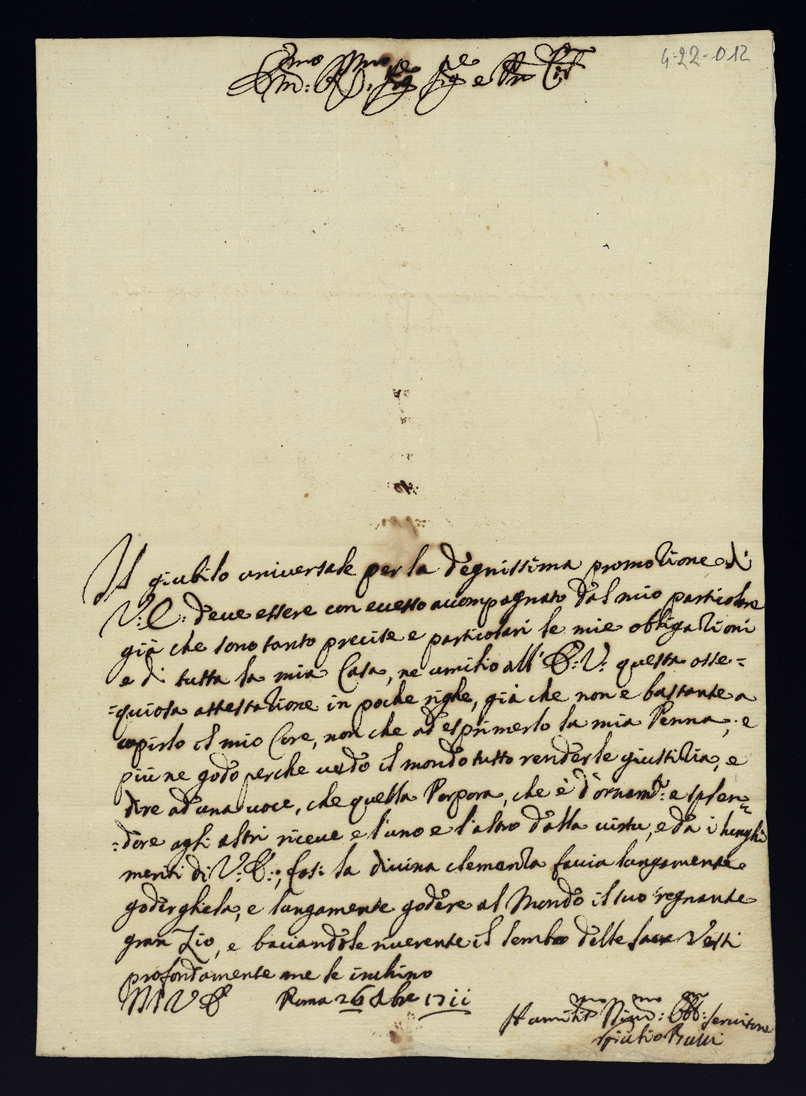 4-22-012
Em:mo R:mo Sig:re Sig:re e P̃ron Col:
Il giubilo universale per la degnissima promotione di
V: E: deve essere con ecesso accompagnato dal mio particolare
già che sono tanto precise e particolari le mie obligationi
e di tutta la mia Casa, ne umilio all' E: V: questa osse=
=quiosa attestatione in poche righe, già che non è bastante a
capirlo il mio Core, non che ad esprimerlo la mia Penna, e
più ne godo perche vedo il mondo tutto renderle giustitia, e
dire ad una voce, che questa Porpora, che è d'ornam:to e splen=
=dore agli altri riceve e l'uno e l'altro dalla virtù, e da i lunghi
meriti di V: E:; così la divina clemenza facia lungamente
goderghela, e lungamente godere al Mondo il suo regnante
gran Zio, e baciandole riverente il lembo delle sacre Vesti
profondamente me le inchino
Di V E Roma 26 Xbre 1711
Humil:mo Div:mo Obb:mo Servitore
Giulio